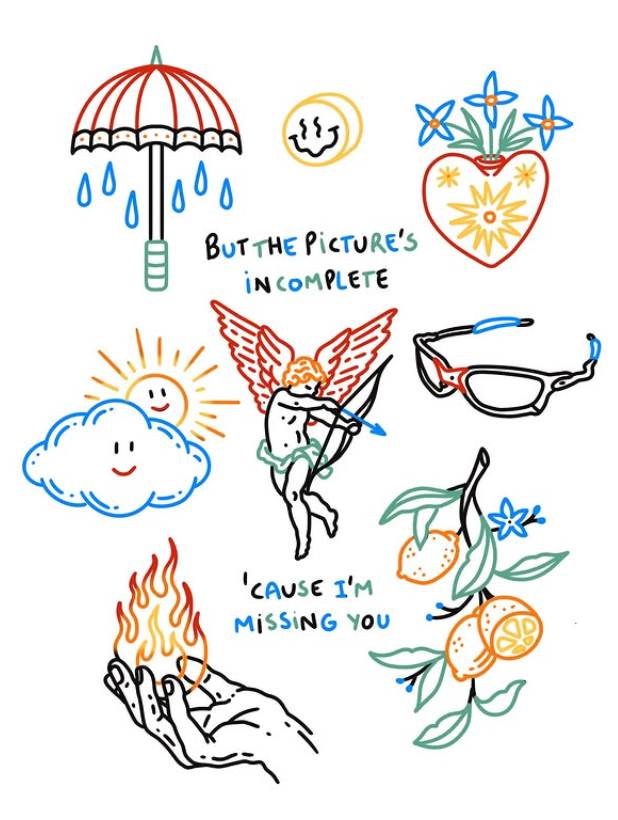 BUT THE PiCTURE'S
iNCOMPLETE
'CAUSE I'M
MiSSiNG YOU